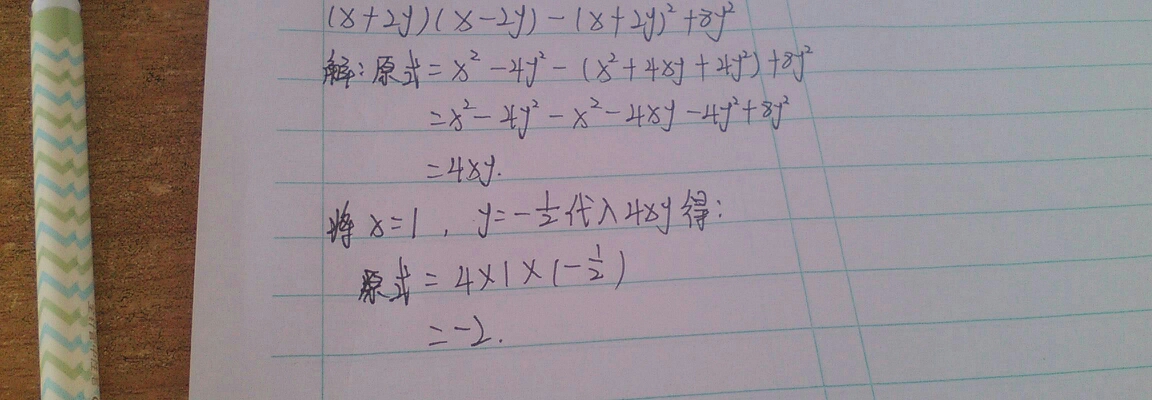 (x+2y)(x-2y)-(x+2y)²+8y²
解:原式=x²-4y²-(x²+4xy+4y²)+8y²
=x²-4y²-x²-4xy-4y²+8y²
=4xy.
将x=1,y=-1/2代入4xy得:
原式=4×1×(-1/2)
=-2.